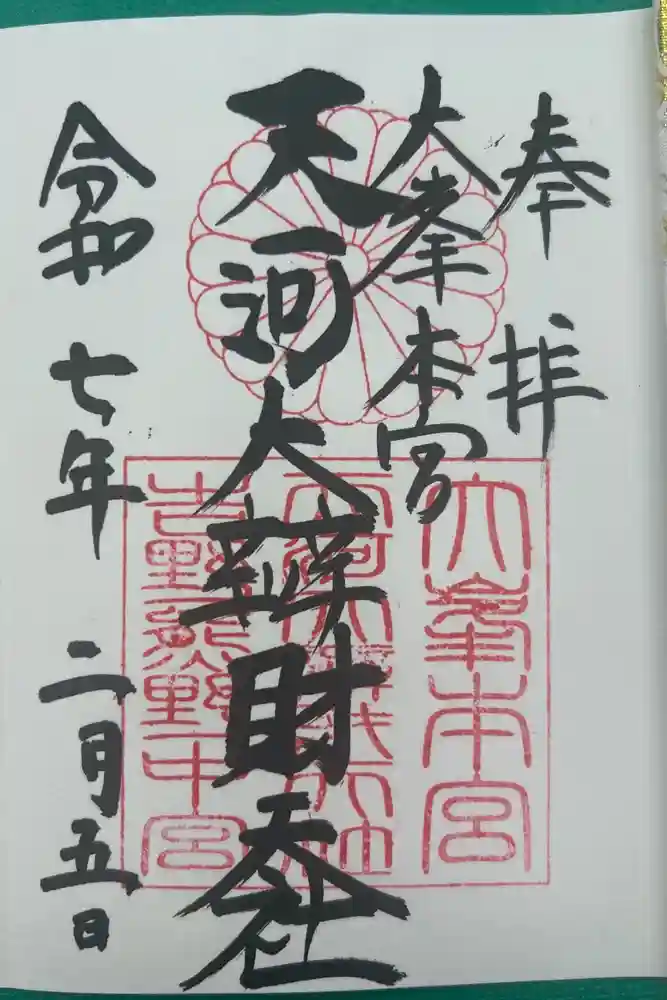 奉拝
大峯本宮
天河大辨財天社
令和七年二月五日
大峯本宮
天河大辨財天社
吉野熊野中宮